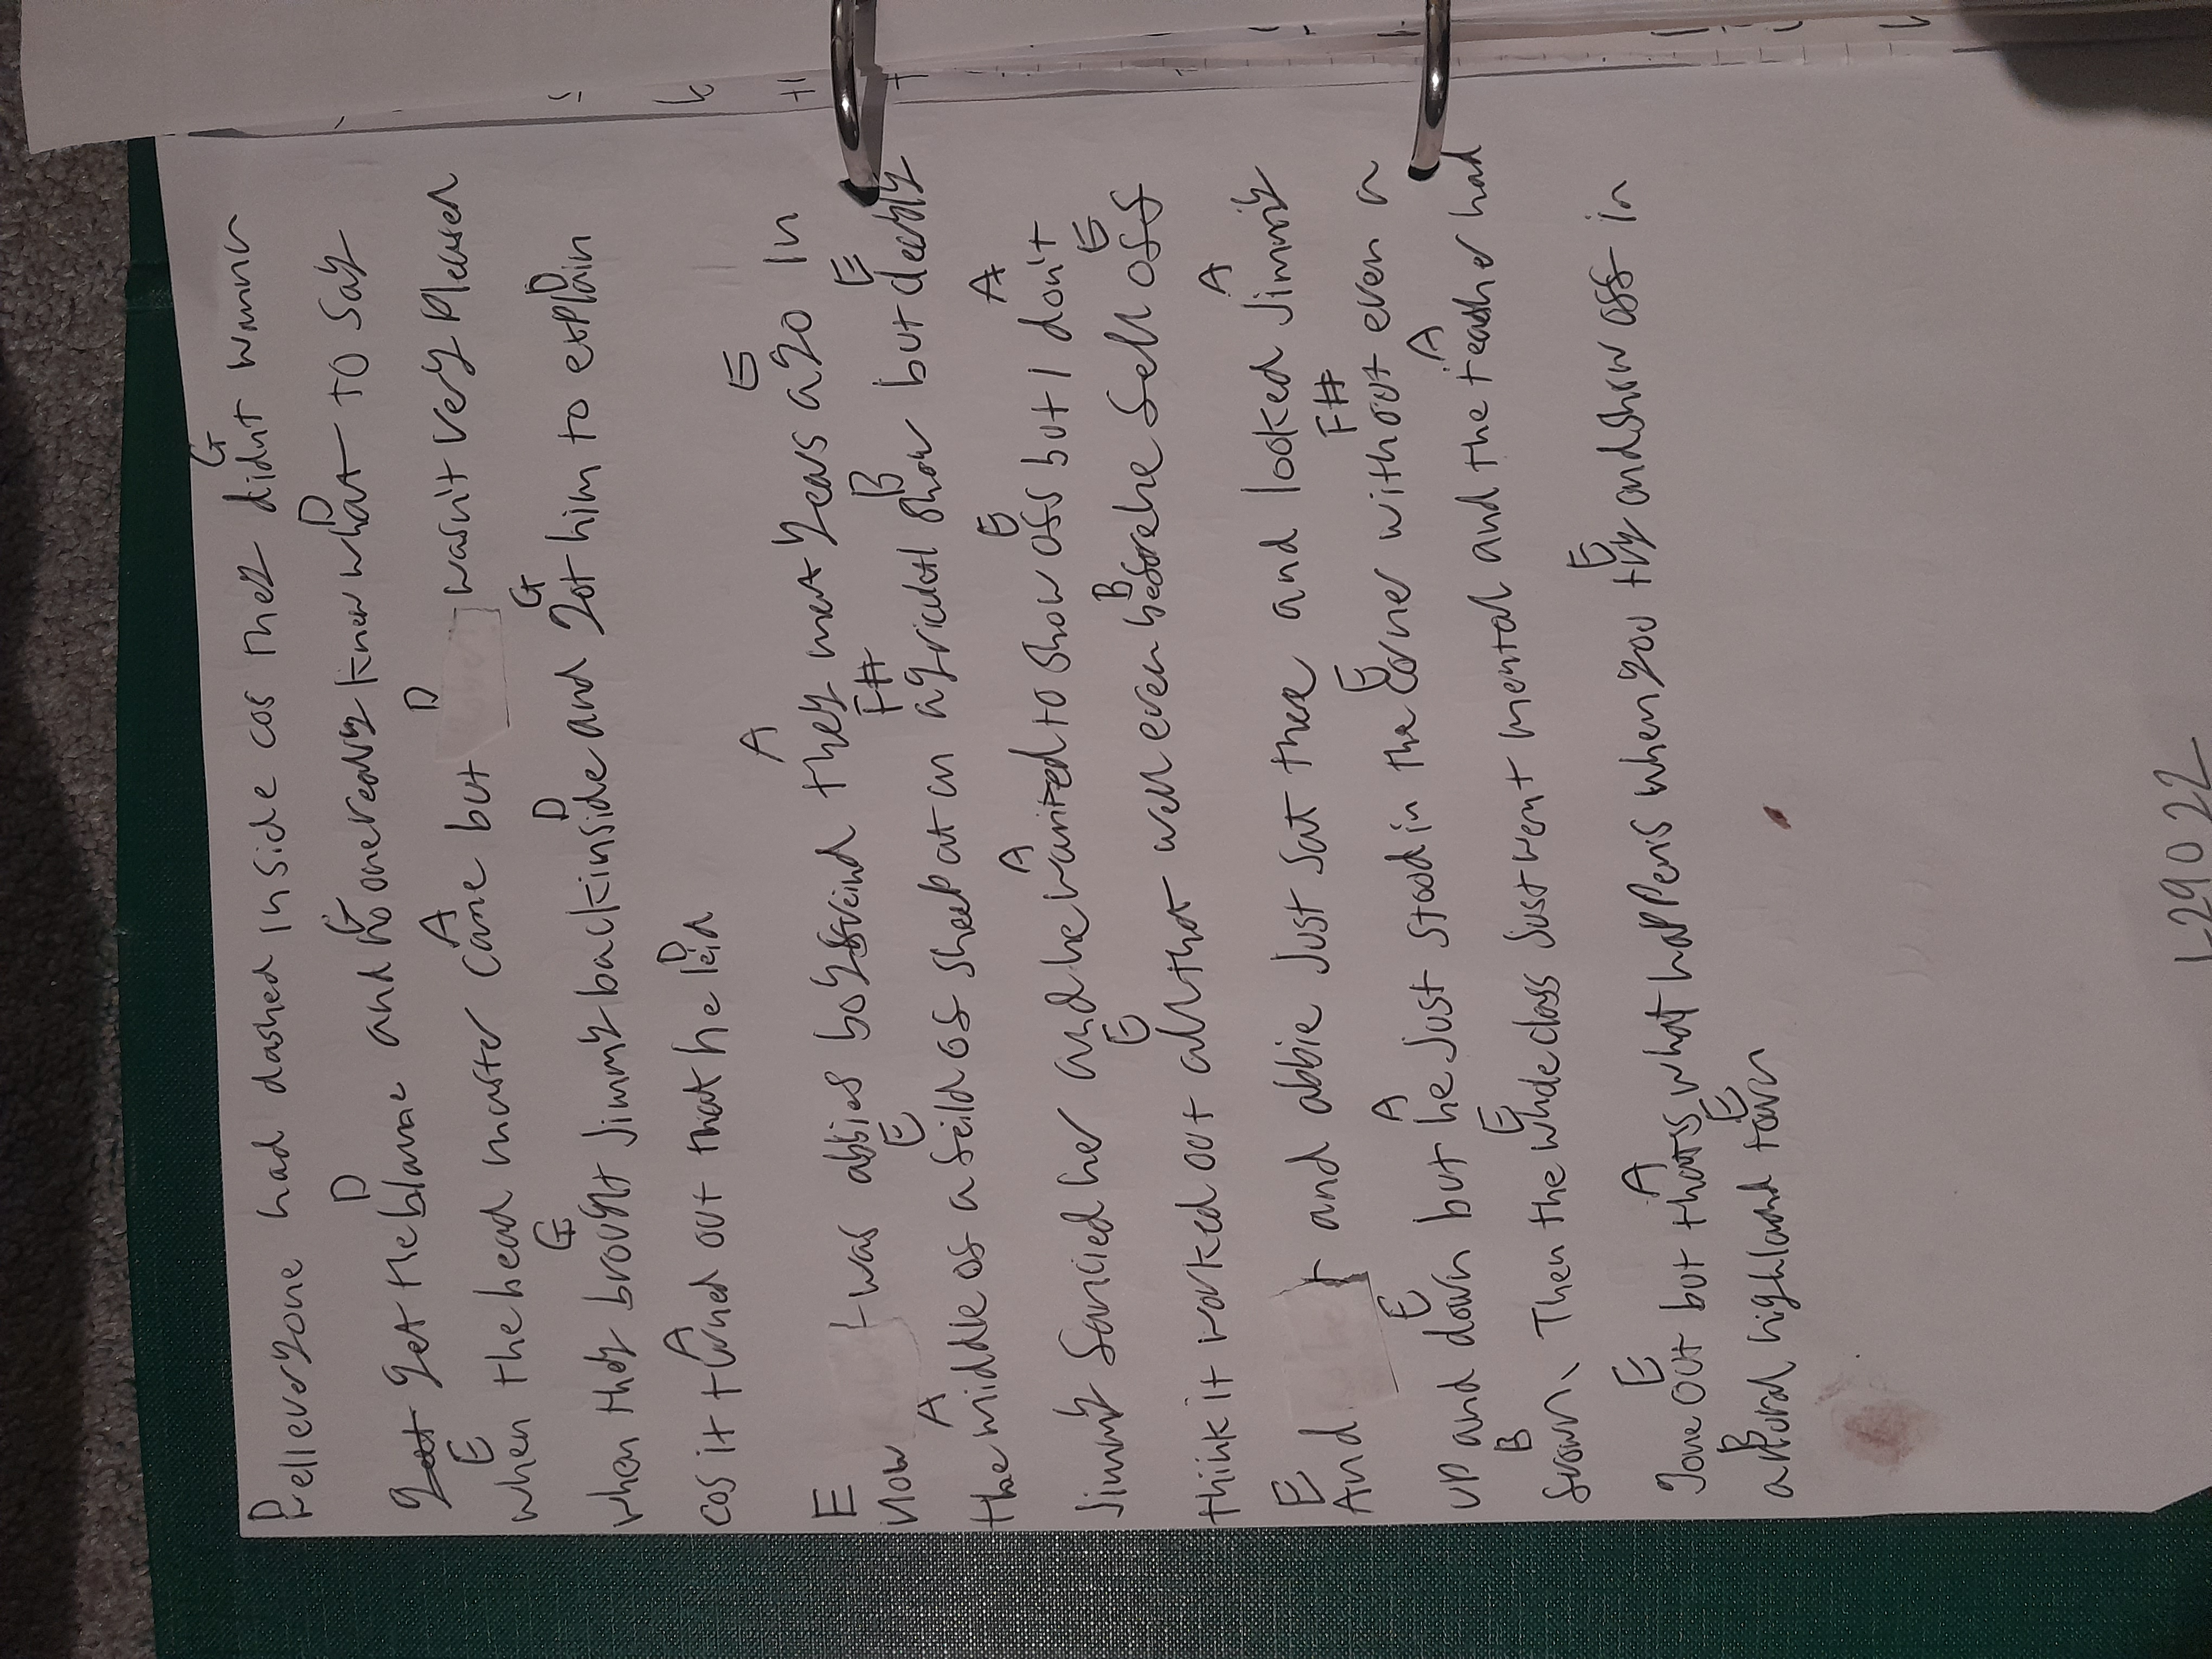 D G
Well everyone had dashed inside cos they didnt wanna
D G D
get the blame and no one really knew what to say
E A D
when the head master came but wasn't very pleased
G D G D
when they brought Jimmy back inside and got him to explain
A D
cos it turned out that he leid
E A E
Now was abbies boyfreind they met years ago in
A E F# B E
the middle of a feild of sheep at an agricutel show but dearly
A E A
Jimmy fancied her and he wanted to show off but I don't
E B E
think it worked out all that well even before he fell off
E A
And and abbie just sat there and looked Jimmy
E A E F#
up and down but he just stood in the corner with out even a
B E A
frown, Then the whole class just went mental and the teacher had
E A E
gone out but thats what happens when you try and show off in
B E
a rural highland town